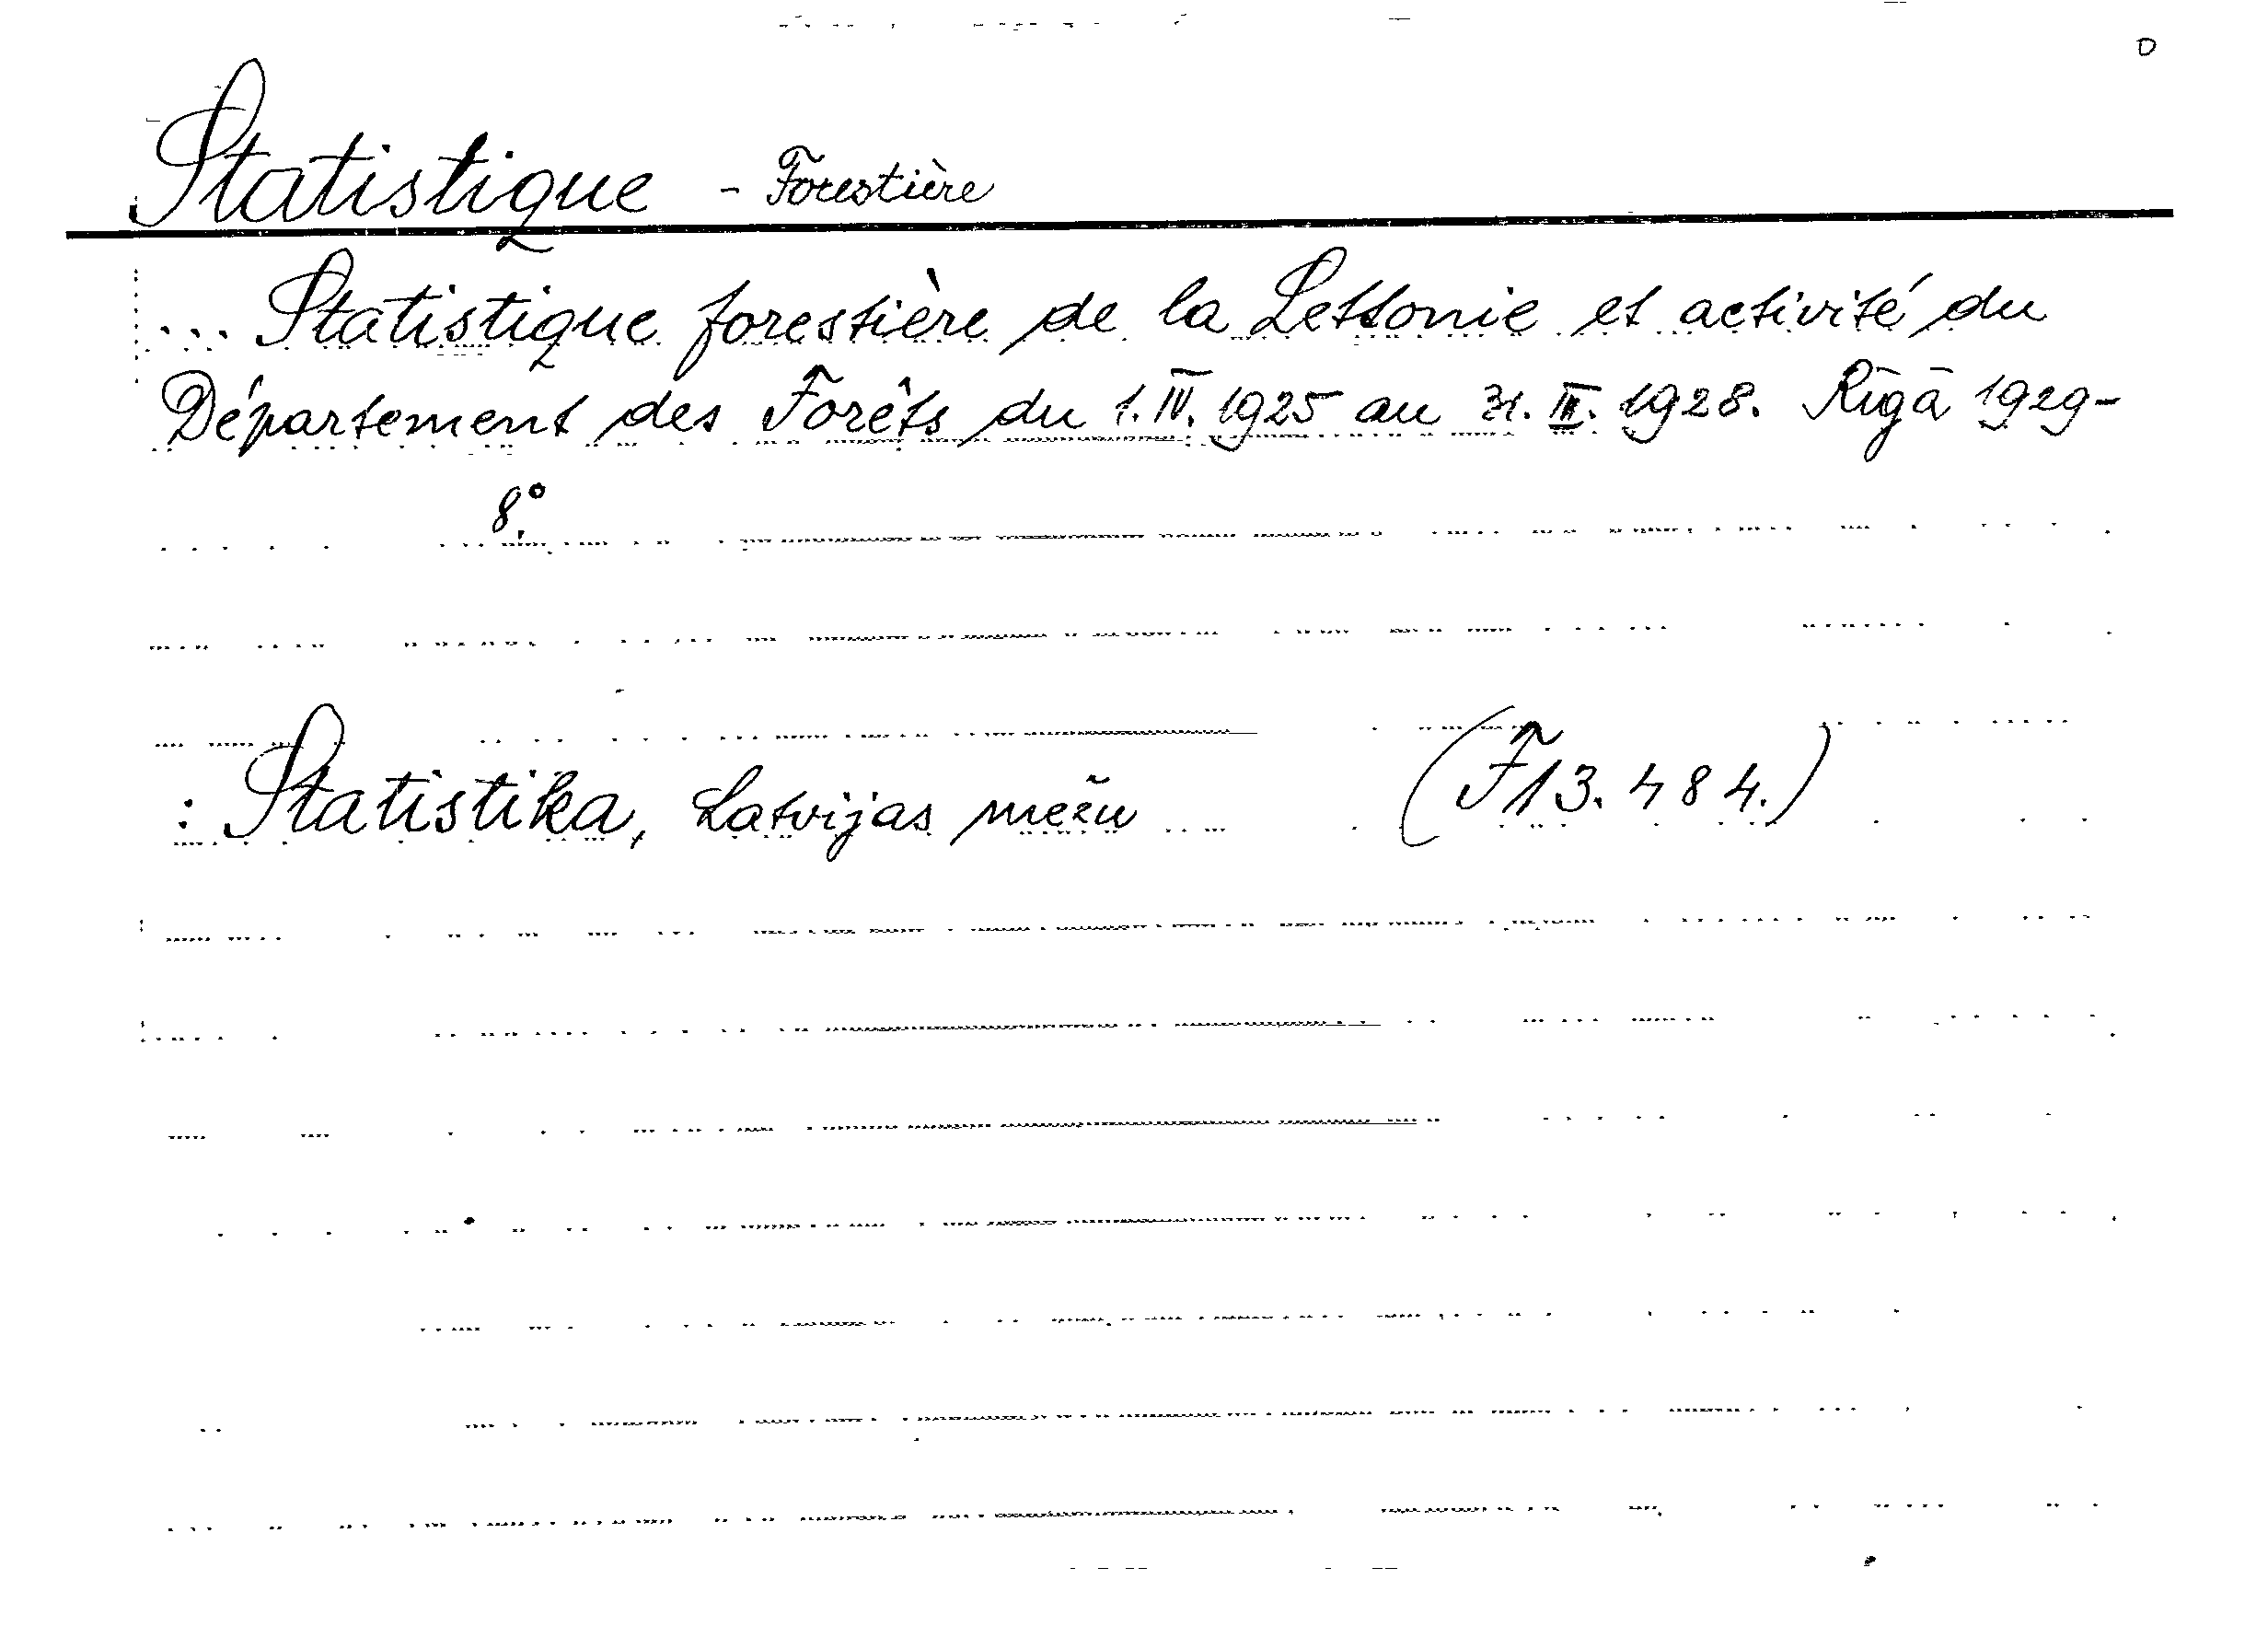 Statistique - Forestière
... Statistique forestière de la Lettonie et activité du
Département des Forêts du 1. IV. 1925 au 31. III. 1928. Rīgā 1929-
8°.
: Statistika, Latvijas mežu (F13.484.)